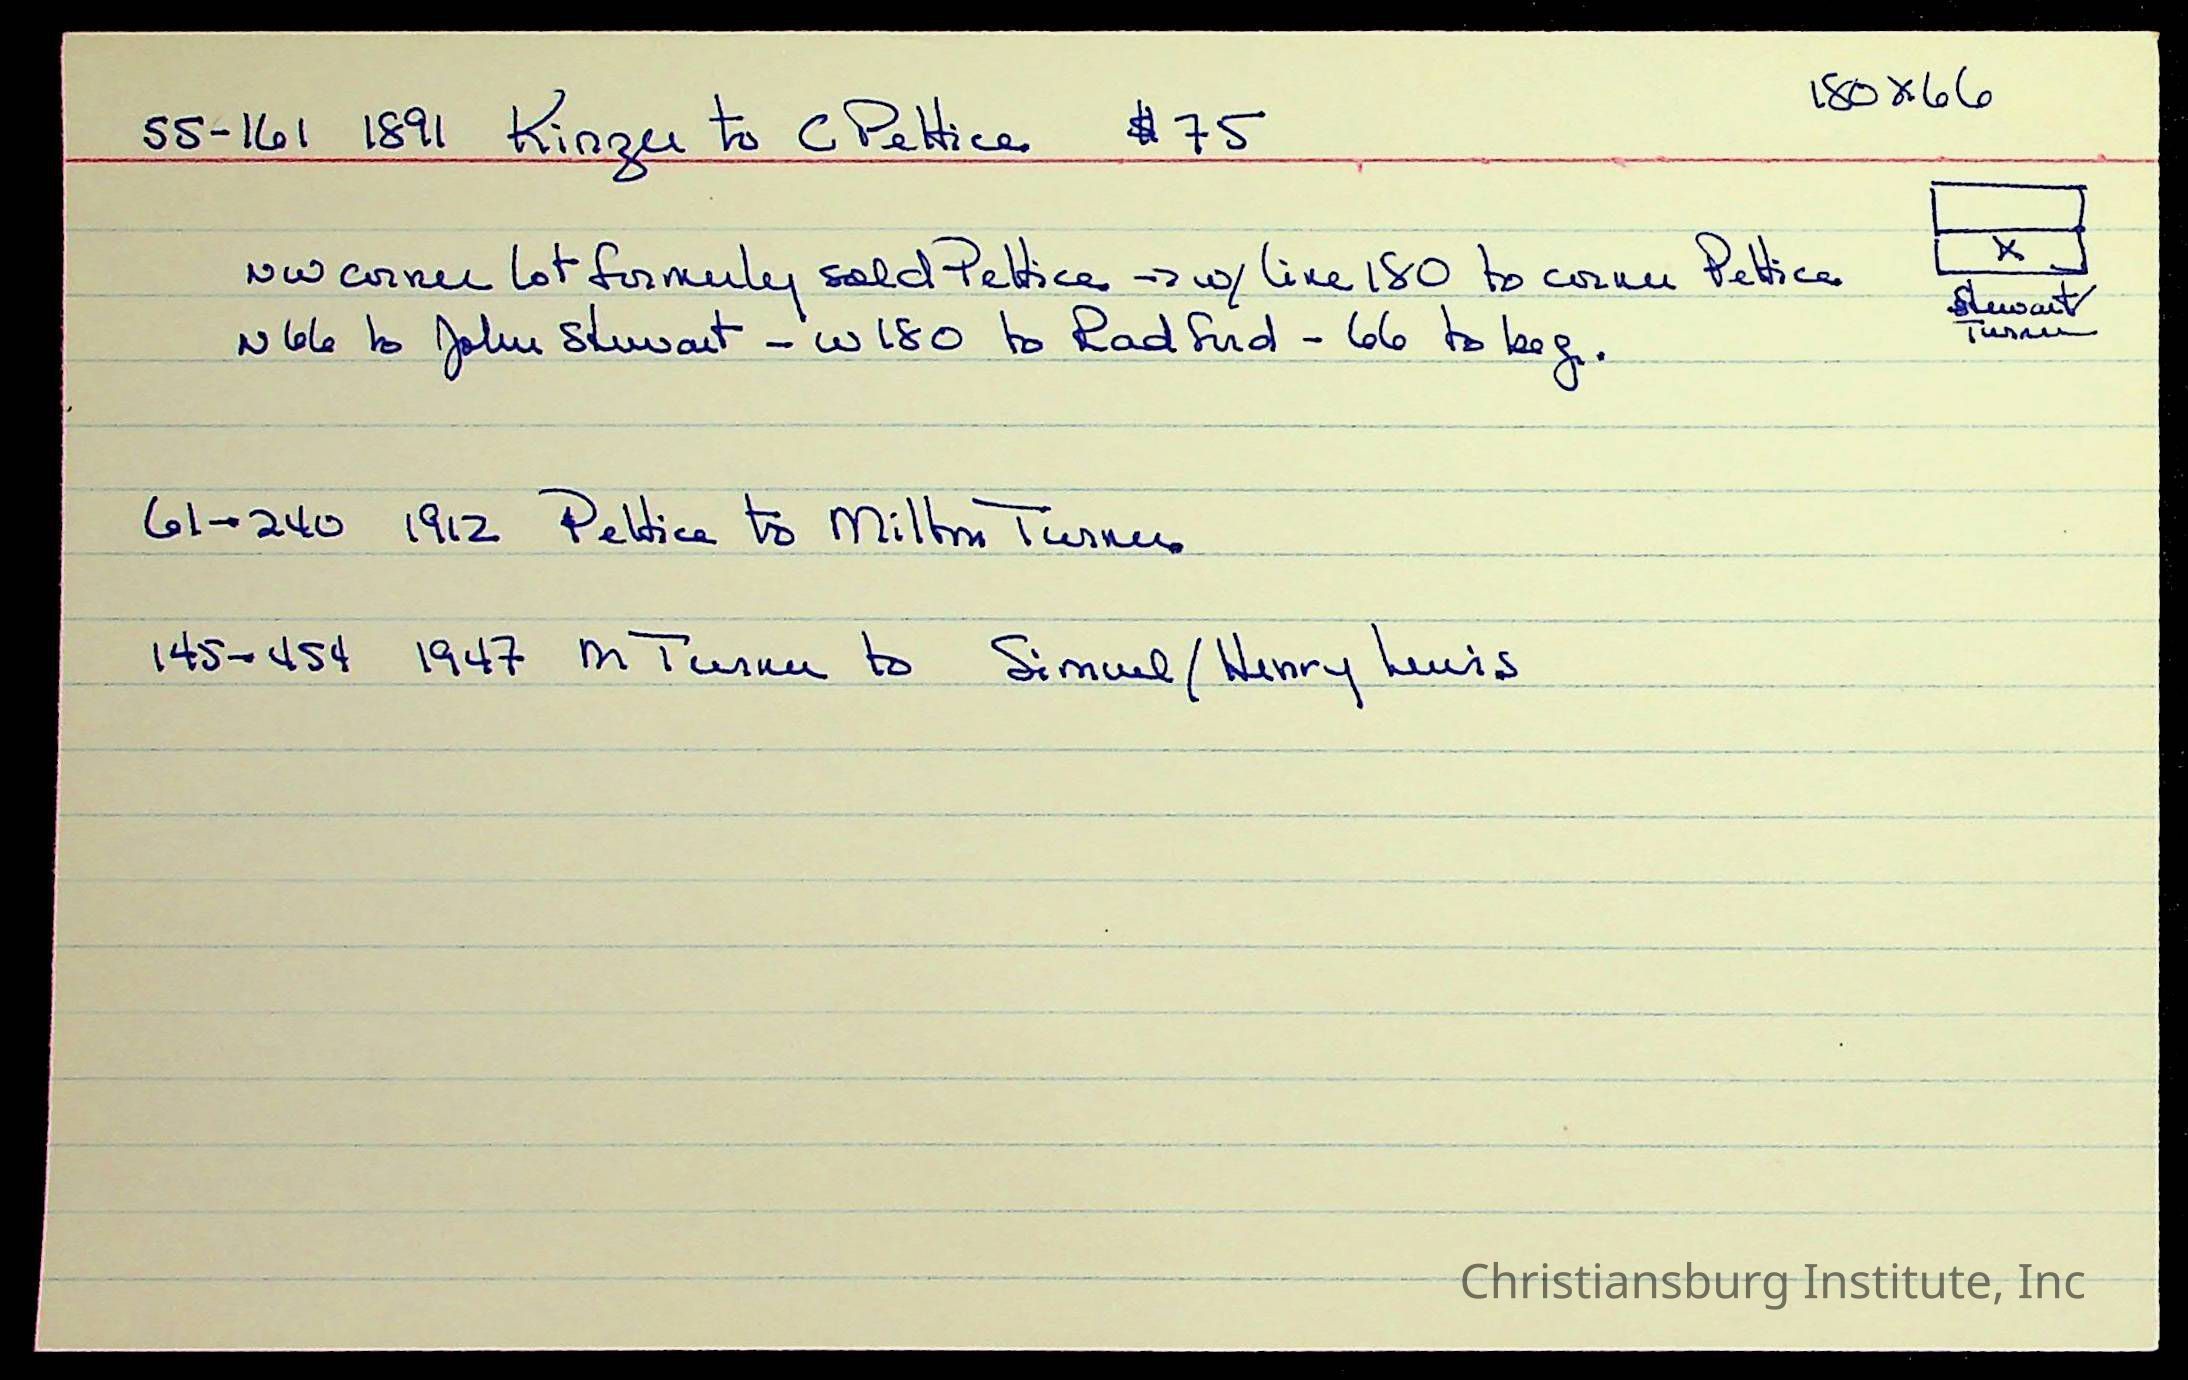 180 x 66
55-161 1891 Kinzer to C Pettice $75
NW corner lot formerly sold Pettice → w/ line 180 to corner Pettice
N 66 to John Stewart - W 180 to Radford - 66 to beg.
X
Stewart/
Turner
61-240 1912 Pettice to Milton Turner
145-454 1947 M Turner to Simuel/Henry Lewis
Christiansburg Institute, Inc